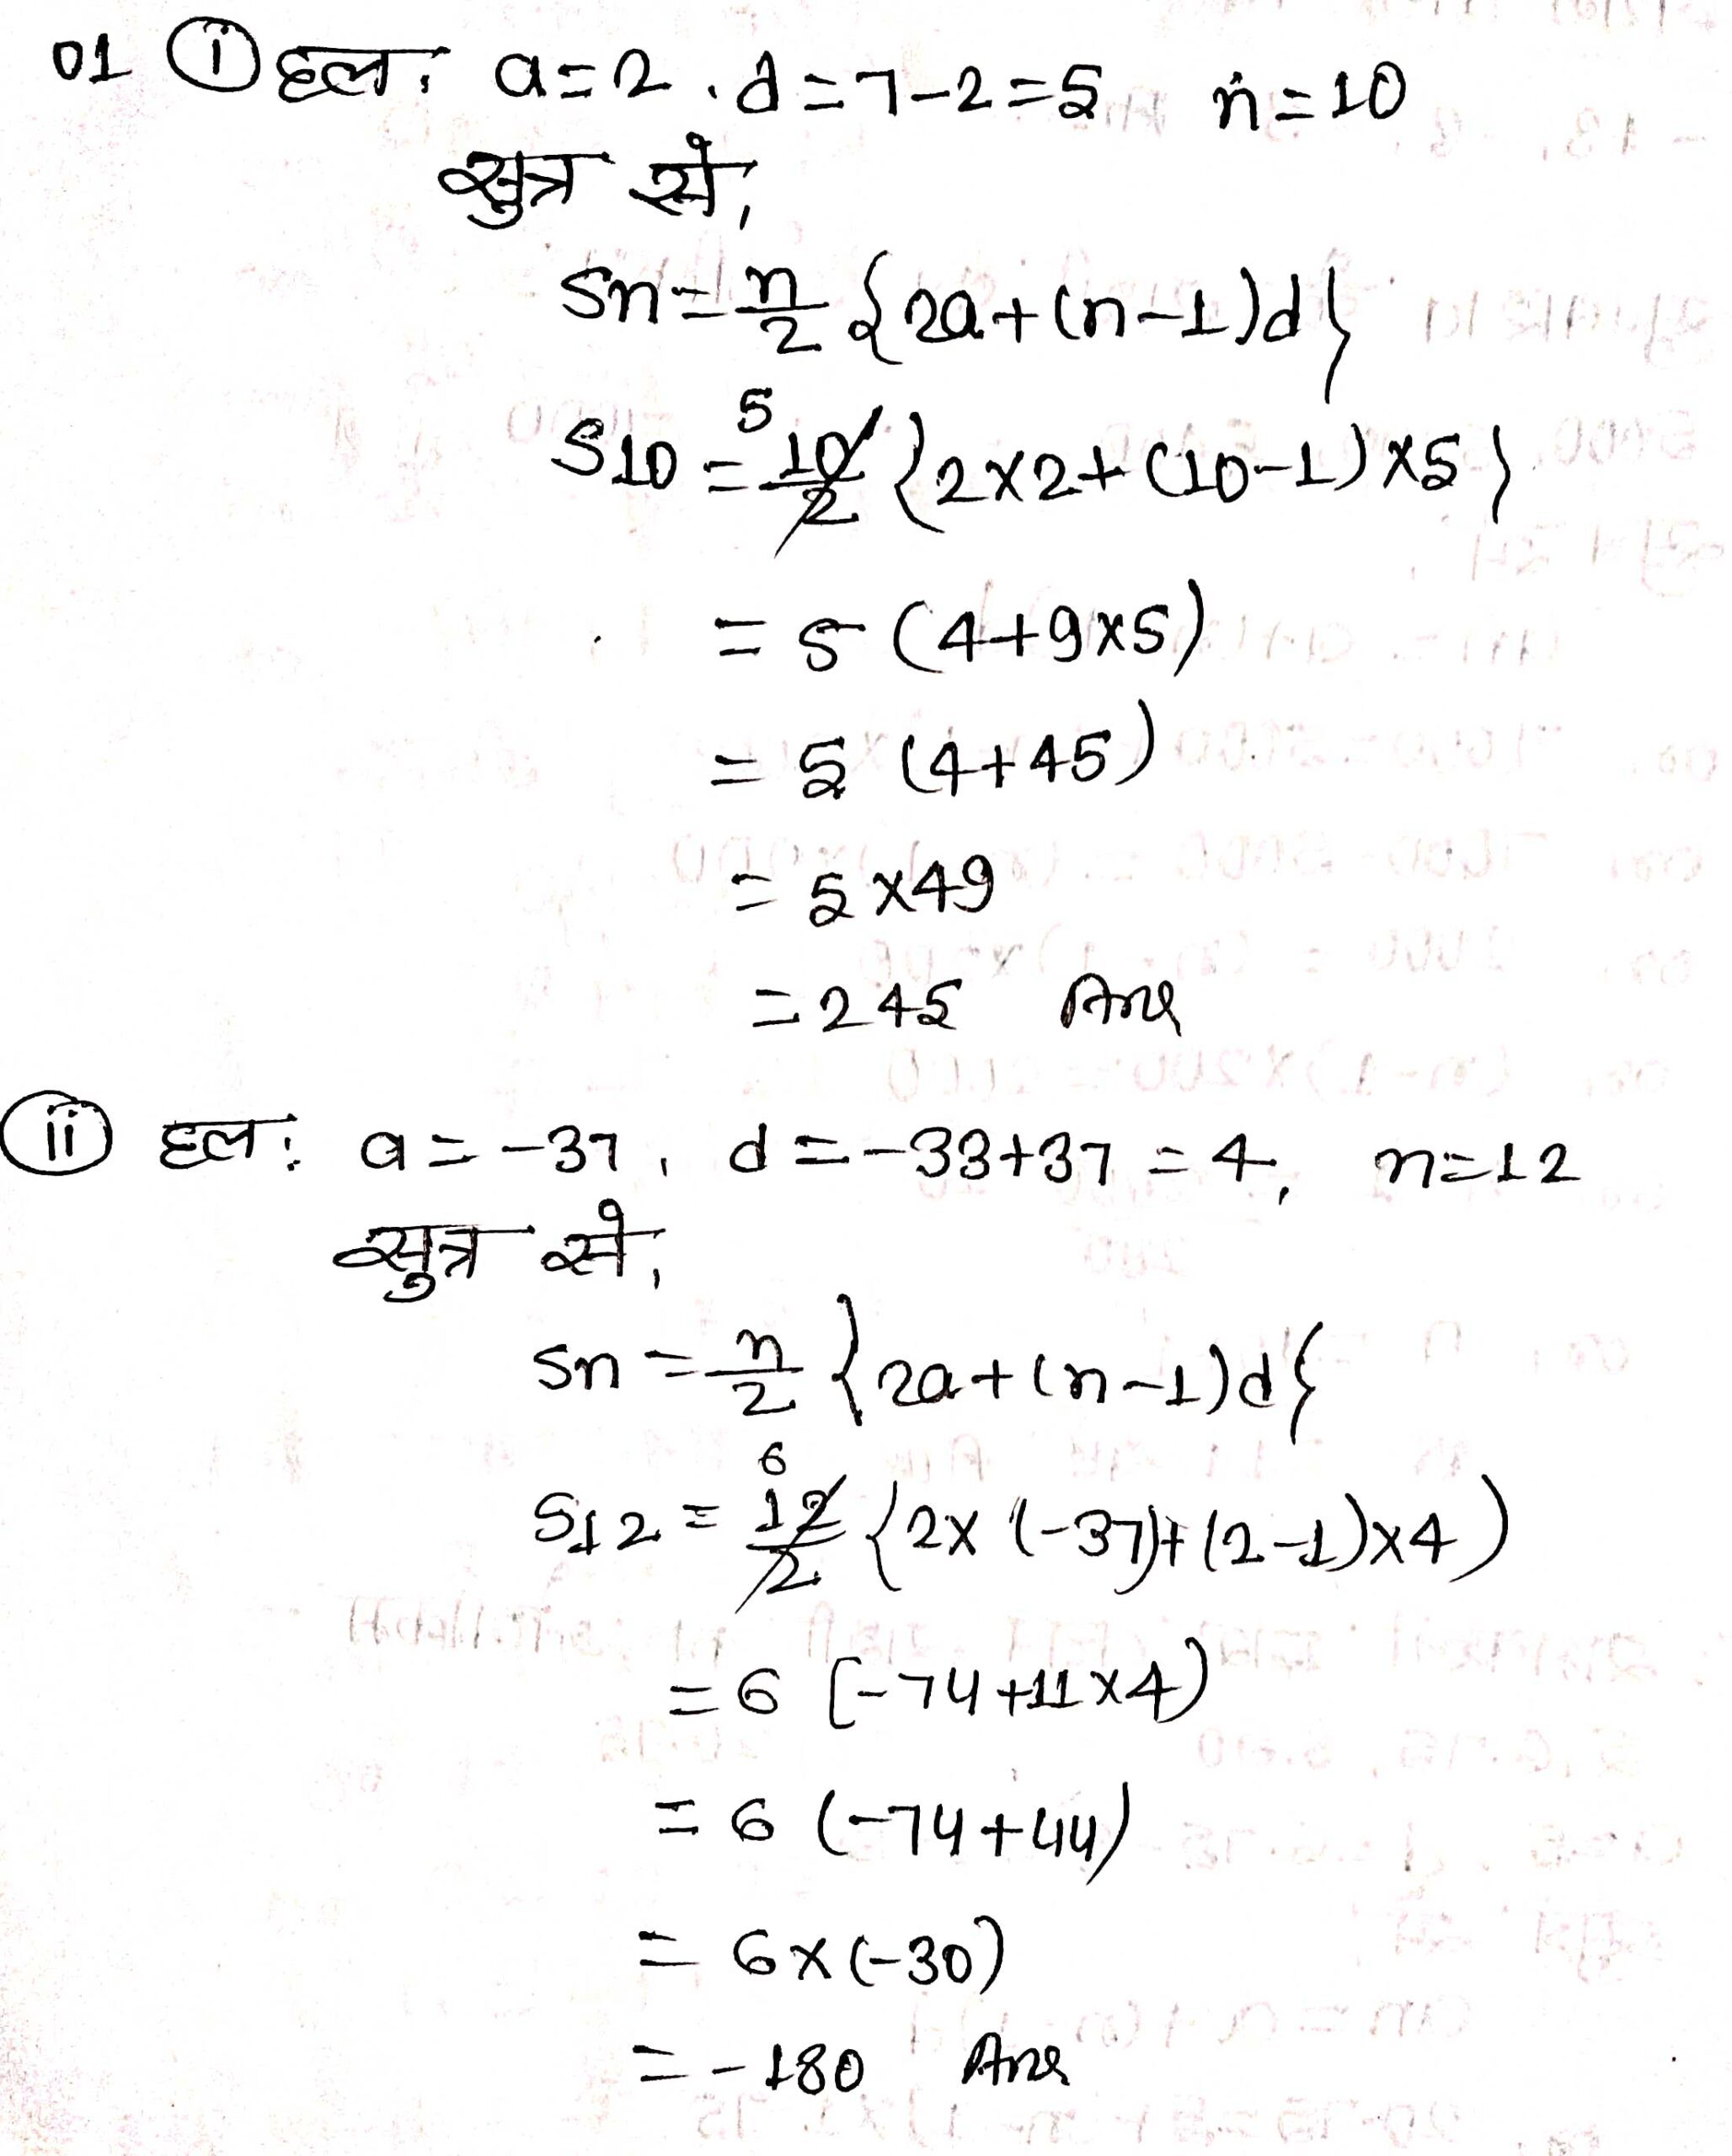 01 (i) हल: a=2, d=7-2=5 n=10
सुत्र से,
Sn=n/2 {2a+(n-1)d}
S10=10/2 {2x2+(10-1)x5} 5
=5(4+9x5)
=5 (4+45)
=5x49
=245 Ans
(ii) हल: a=-37, d=-33+37=4, n=12
सुत्र से,
Sn=n/2 {2a+(n-1)d}
S12=12/2 {2x(-37)+(12-1)x4) 6
=6 (-74+11x4)
=6 (-74+44)
=6x(-30)
=-180 Ans